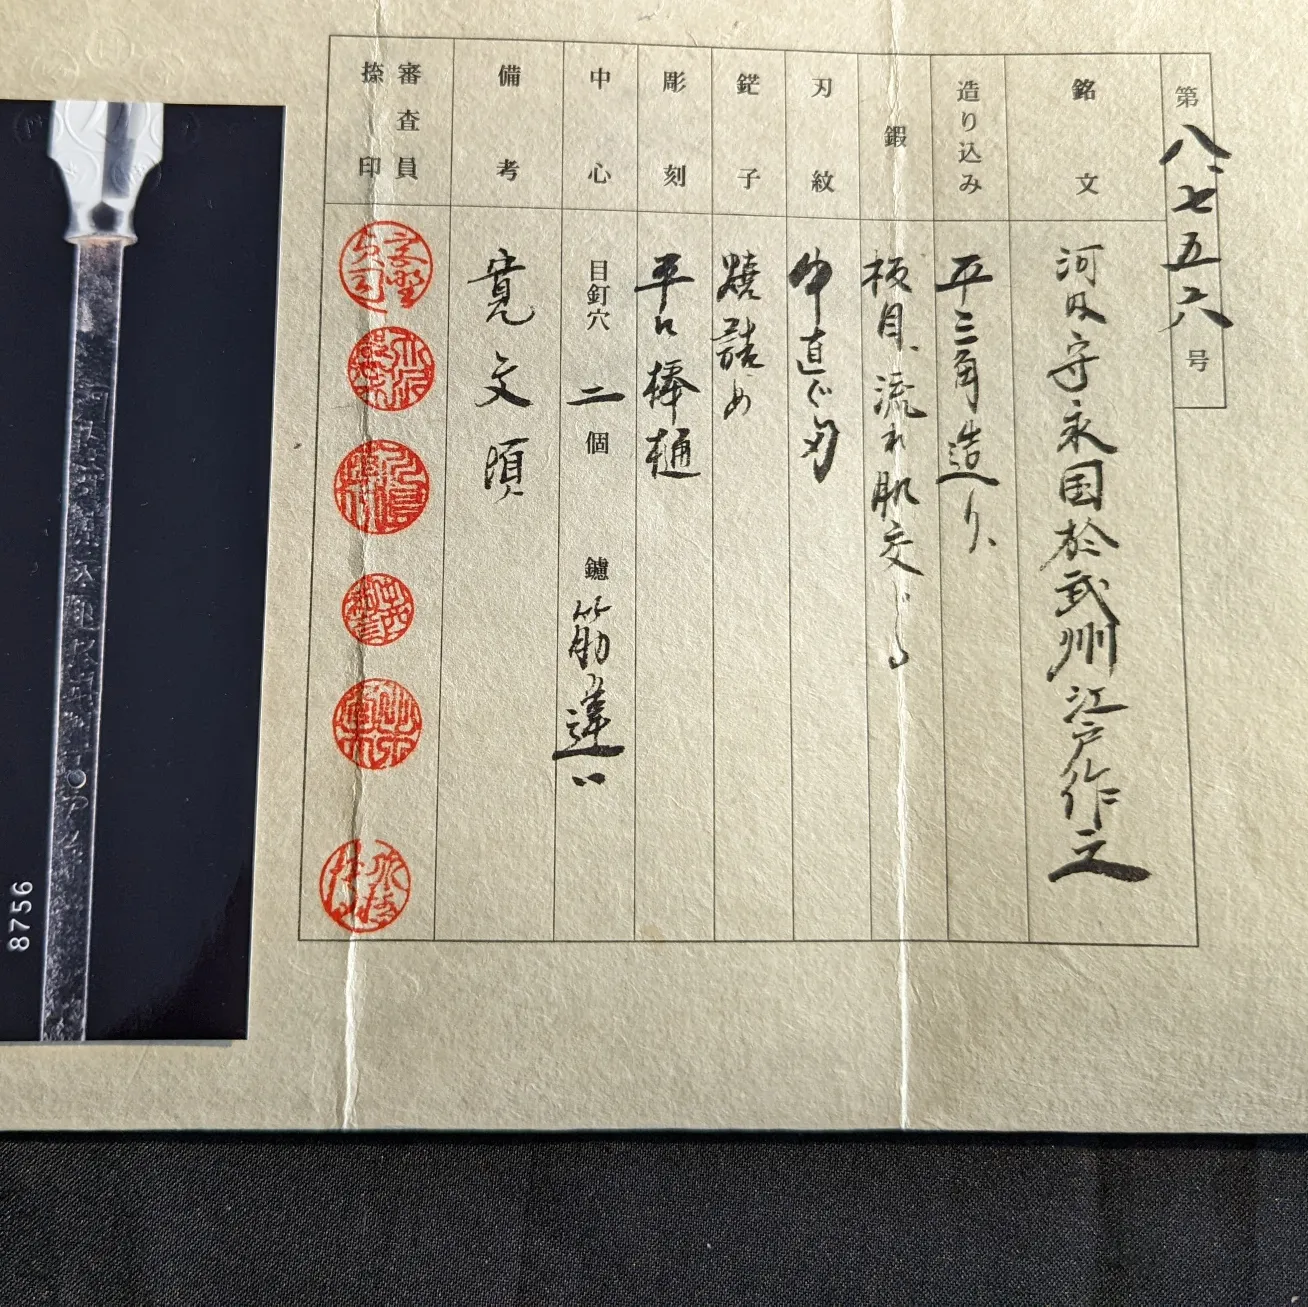 第八七五六号
銘文
河内守永国於武州江戸作之
造り込み
平三角造り、
鍜
板目、流れ肌交じる
刃紋
中直ぐ刃
鋩子
焼詰め
彫刻
平に棒樋
中心
目釘穴 二 個 鑢 筋違い
備考
寛文頃
審査員
捺印
8756